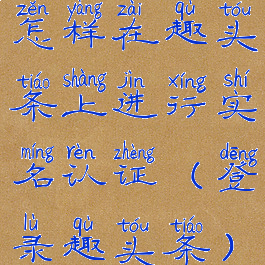 zěn yàng zài qù tóu
怎样在趣头
tiáo shàng jìn xíng shí
条上进行实
míng rèn zhèng dēng
名认证（登
lù qù tóu tiáo
录趣头条）